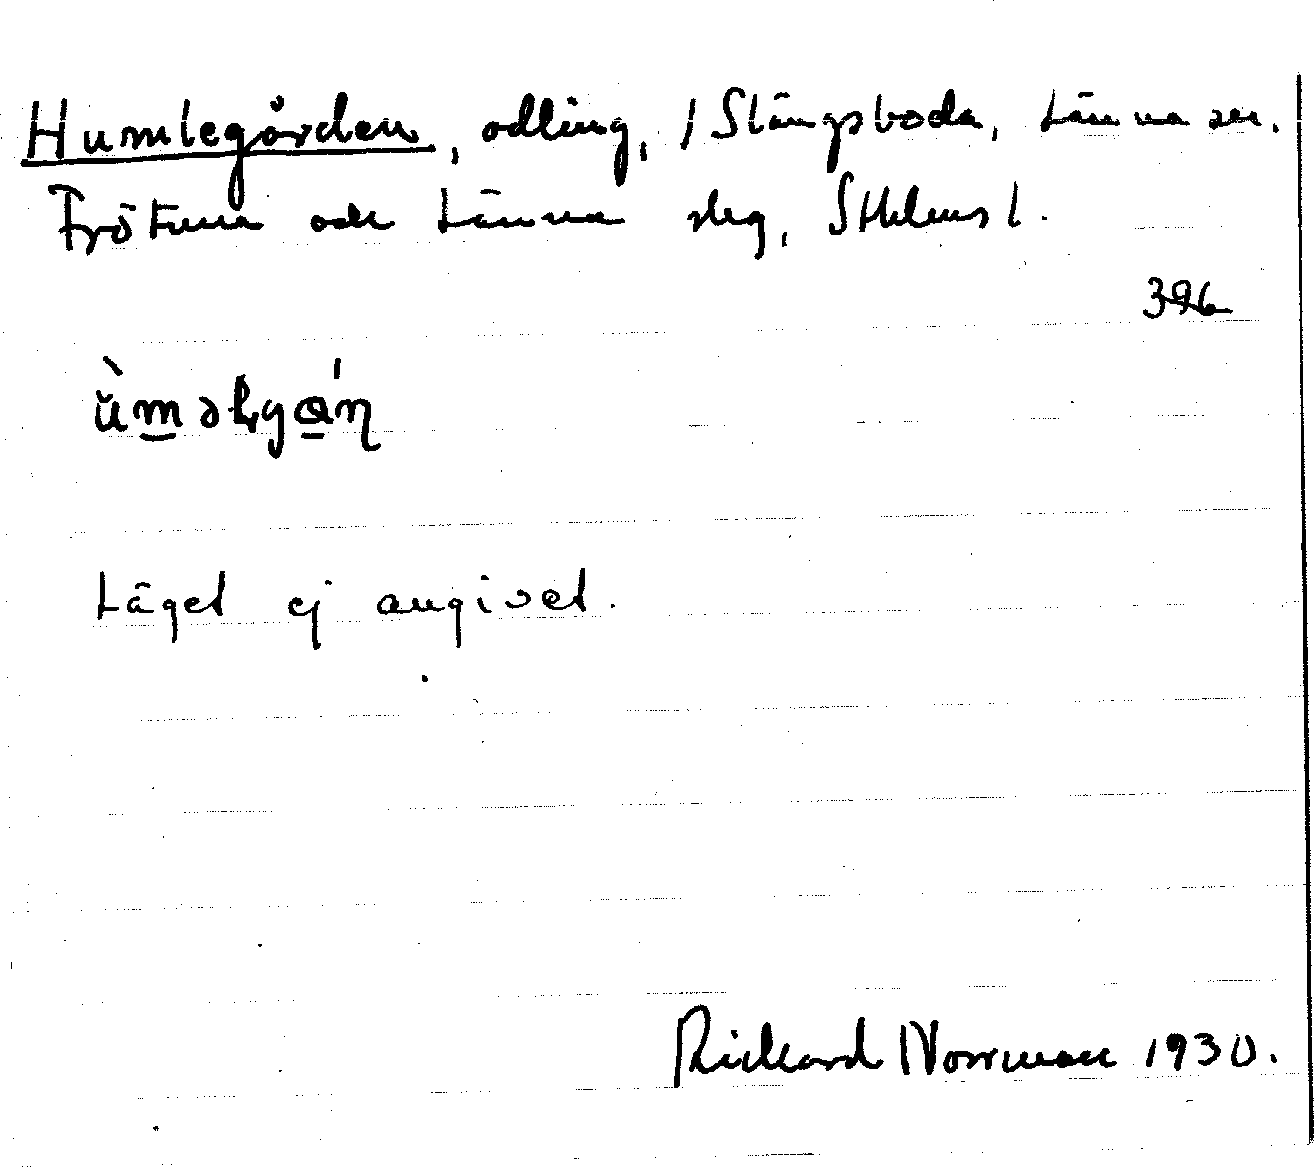 Humlegården, odling, / Slängsboda, Länna sn.
Frötuna och Länna slag, Sthlms l.
396
ùməlgán
Läget ej angivet.
Rickard Norrman 1930.